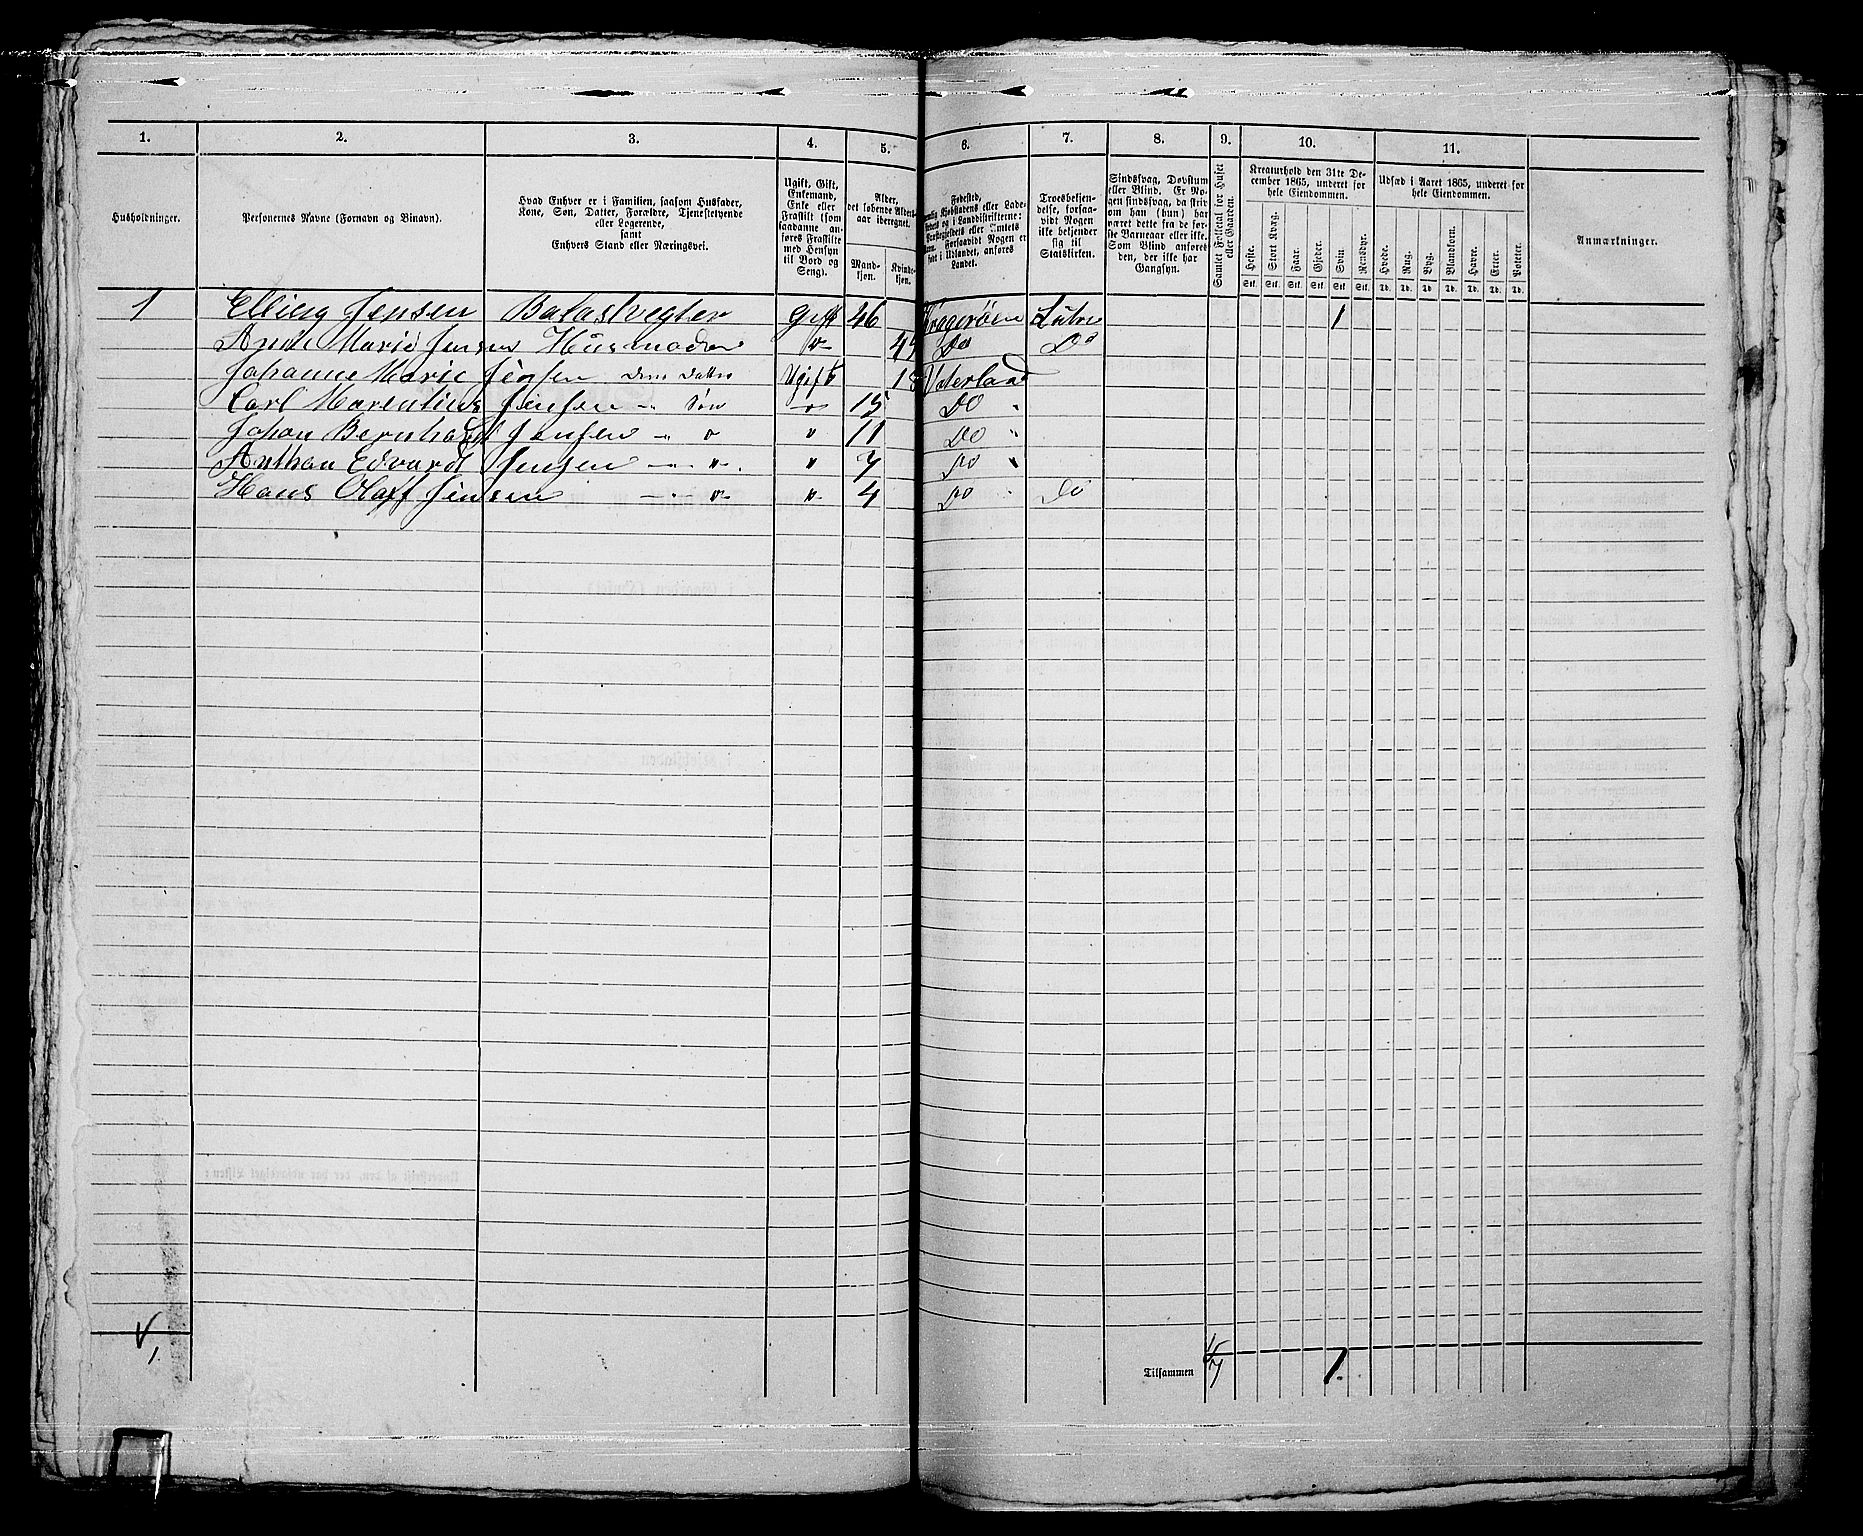 1. 2. 3. 4. 5. 6. 7. 8. 9. 10. 11.
Husholdninger.
Personernes Navne (Fornavn og Binavn).
Hvad Enhver er i Familien, saasom Husfader,
Kone, Søn, Datter, Forældre, Tjenestetyende
eller Logerende,
samt
Enhvers Stand eller Næringsvei.
Ugift, Gift,
Enkemand,
Enke eller
Fraskilt (som
saadanne an-
føres Fraskilte
med Hensyn
til Bord og
Seng).
Alder,
det løbende Alders-
aar iberegnet.
Mand-
kjøn.
Kvinde-
kjøn.
Fødested,
Kjøbstadens eller Lade-
og i Landdistrikterne:
Præstegjeldets eller Amtets
Navn.
Forsaavidt Nogen er
født i Udlandet, anføres
Landet.
Troesbekjen-
delse, forsaa-
vidt Nogen
ikke bekjender
sig til
Statskirken.
Sindssvag, Døvstum
eller Blind. Er No-
gen sindssvag, da skriv
om han (hun) har
været dette fra de før-
ste Barneaar eller ikke.
Som Blind anføres
den, der ikke har
Gangsyn.
Samlet Folketal for Huset
eller Gaarden.
Kreaturhold den 31te De-
cember 1865, underet for
hele Eiendommen.
Heste. Stort Kvæg. Faar. Gjeder. Svin. Rensdyr.
Stk. Stk. Stk. Stk. Stk. Stk.
Udsæd i Aaret 1865, underet for
hele Eiendommen.
Hvede. Rug. Byg. Blandkorn. Havre. Erter. Poteter.
Td. Td. Td. Td. Td. Td. Td.
Anmærkninger.
1 Elling Jensen Balastvegter Gift 46 Kragerøen Lutre 1
Anne Marie Jensen Husmoder 45 Do Do
Johanne Marie Jensen Deres Datter Ugift 18 Vaterland
Carl Marentius Jensen " Søn 15 Do "
Johan Bernhard Jensen " " " 11 Do "
Anthon Edvard Jensen " " " 7 Do "
Hans Olaff Jensen " " " 4 Do " Do
1.
Tilsammen 7 1.